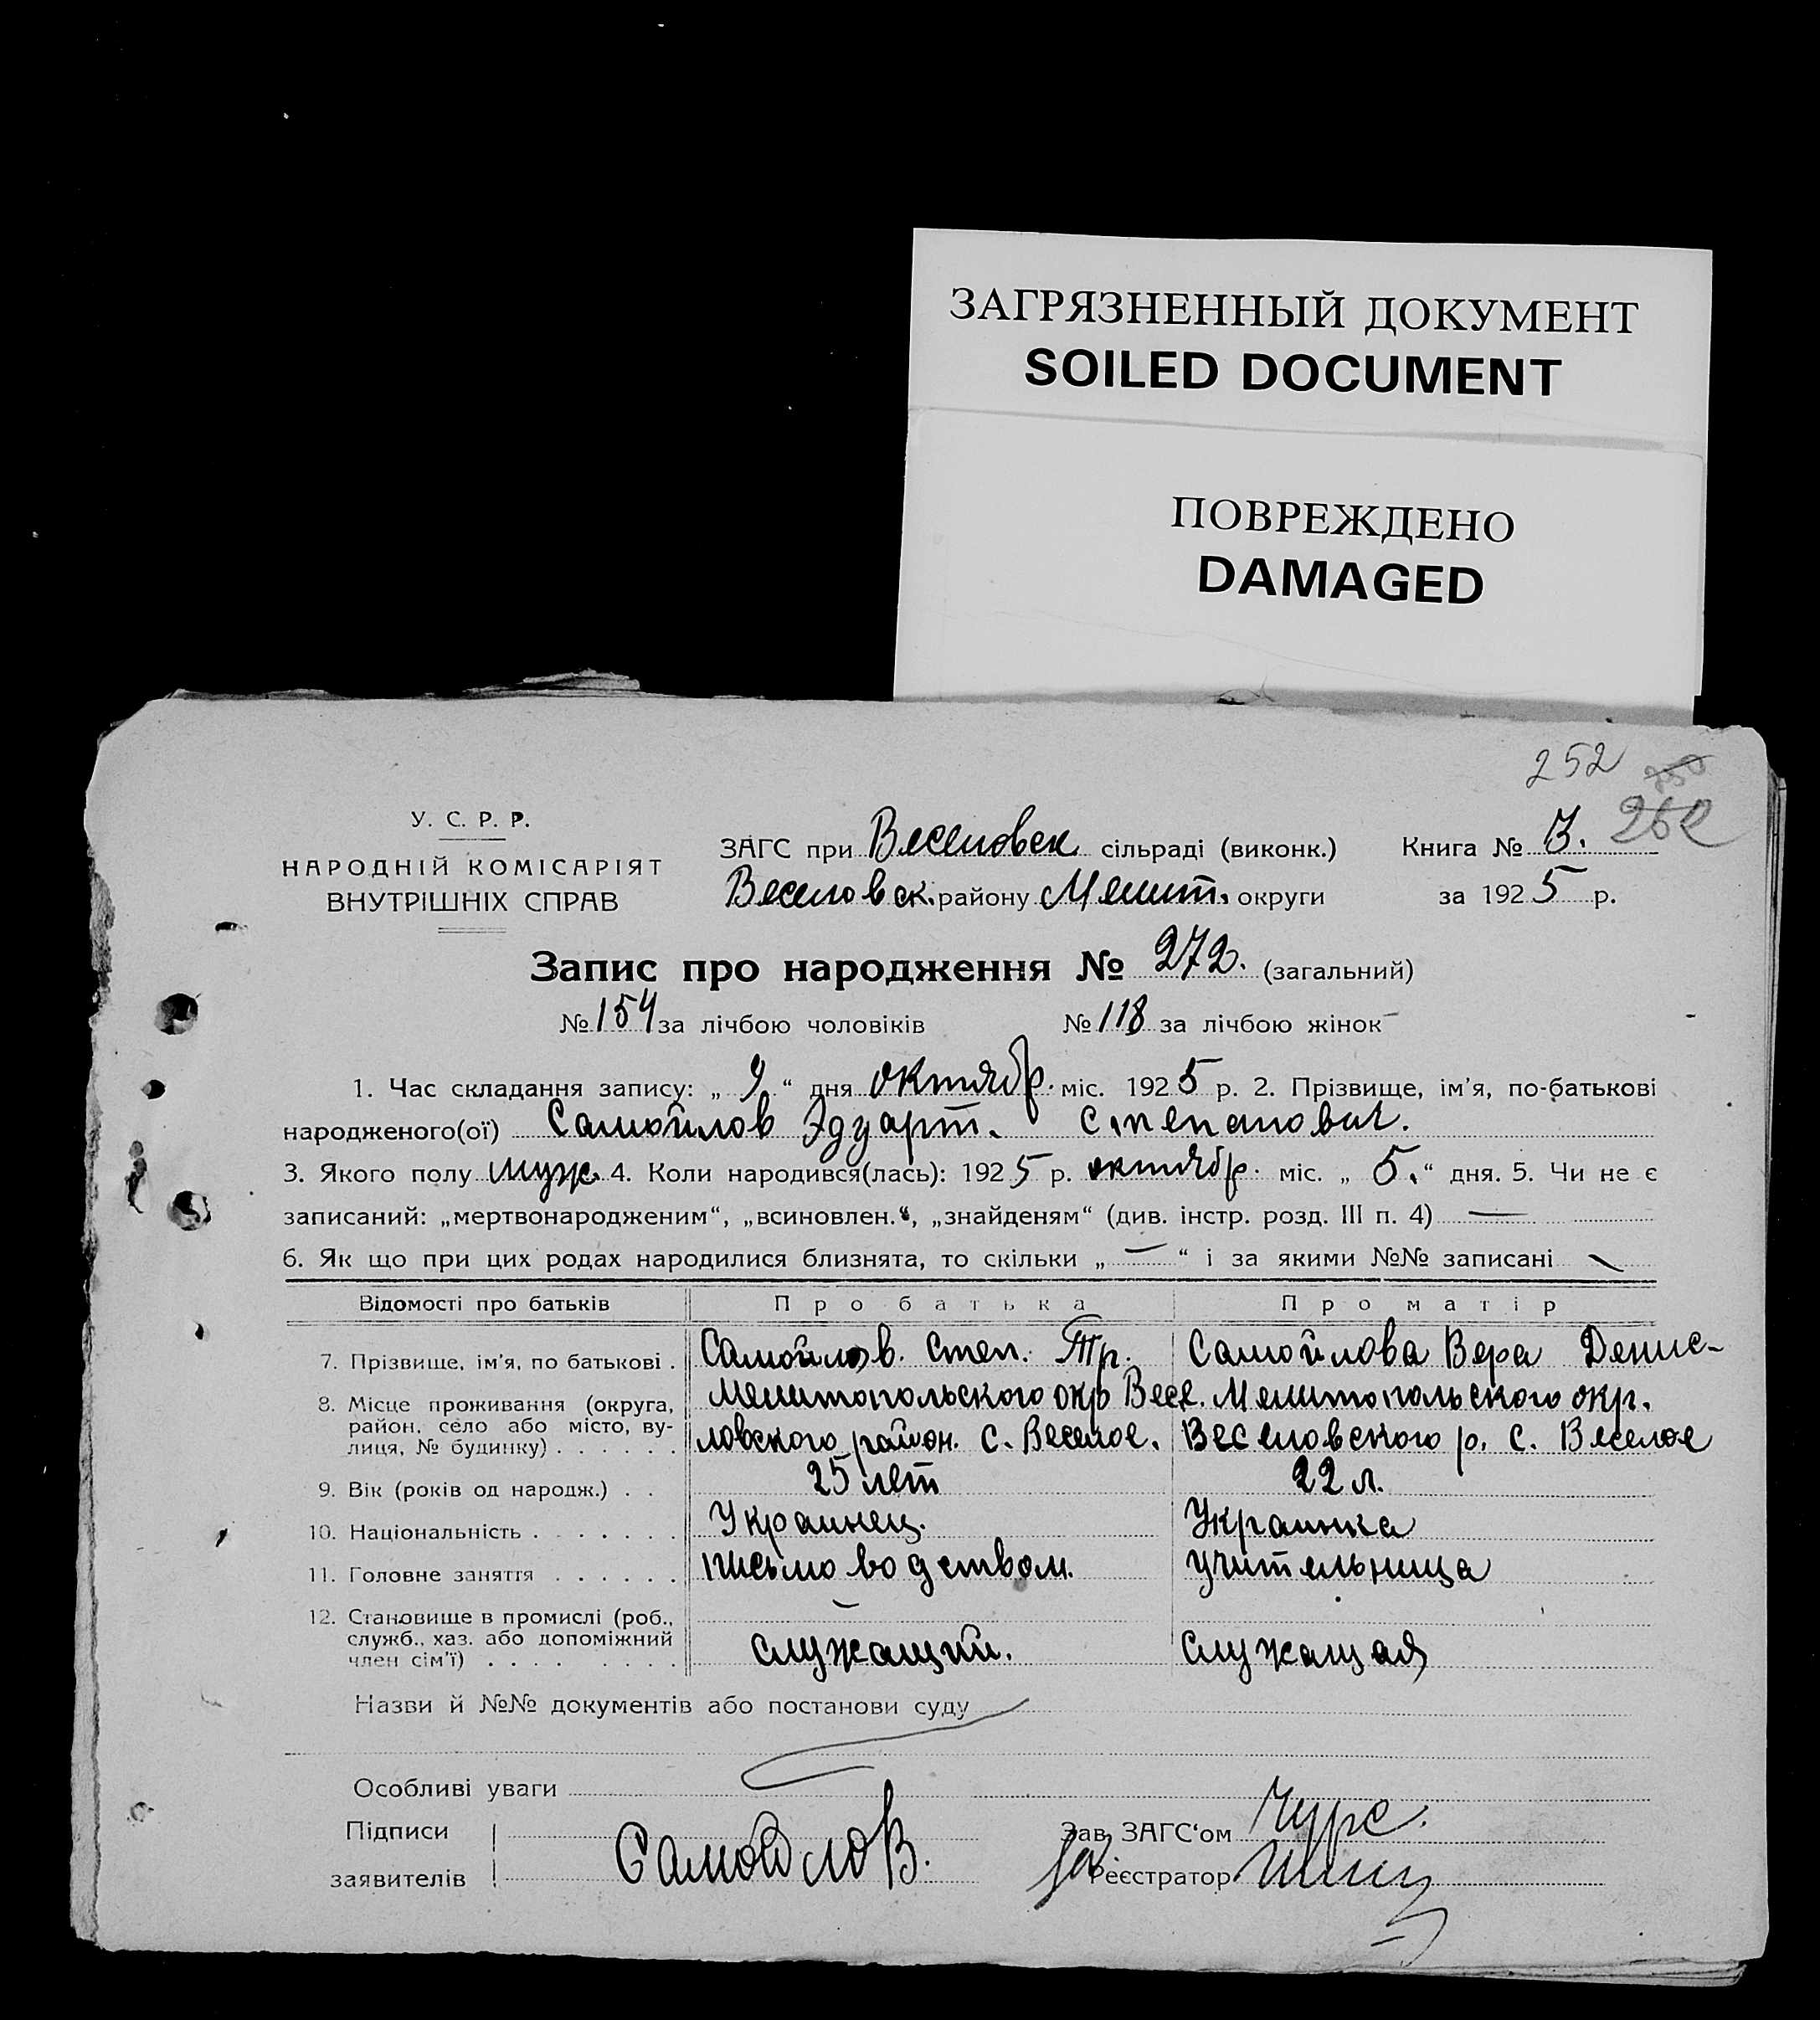 ЗАГРЯЗНЕННЫЙ ДОКУМЕНТ
SOILED DOCUMENT
ПОВРЕЖДЕНО
DAMAGED
252
У. С. Р. Р.
НАРОДНІЙ КОМІСАРІЯТ
ВНУТРІШНІХ СПРАВ
ЗАГС при Веселовск сільраді (виконк.) Книга №
Веселовск. району Мелит. округи за 1925 р.
Запис про народження № 272. (загальний)
№ 154 за лічбою чоловіків № 118 за лічбою жінок
1. Час складання запису: „ 9 “ дня октябр. міс. 1925 р. 2. Прізвище, ім'я, по-батькові
народженого(ої) Самойлов Эдуарт. Степанович.
3. Якого полу муж. 4. Коли народився(лась): 1925 р. октябр. міс. „ 5. “ дня. 5. Чи не є
записаний: „мертвонародженим“, „всиновлен.“, „знайденям“ (див. інстр. розд. III п. 4) —
6. Як що при цих родах народилися близнята, то скільки „ — “ і за якими №№ записані
Відомості про батьків Про батька Про матір
7. Прізвище, ім'я, по батькові . Самойлов. Степ. Тр. Самойлова Вера Денис-
8. Місце проживання (округа, район, село або місто, вулиця, № будинку) . . . . . . Мелитопольского окр Весе. Мелитопольского окр.
ловского район. с. Веселое. Веселовского р. с. Веселое
9. Вік (років од народж.) . . 25 лет 22 л.
10. Національність . . . . . . . Украинец. Украинка
11. Головне заняття . . . . . . письмоводством. учительница
12. Становище в промислі (роб., служб., хаз. або допоміжний член сім'ї) . . . . . . . . служащий. служащая
Назви й №№ документів або постанови суду
Особливі уваги
Підписи
заявителів Самойлов.
Зав. ЗАГС‘ом
Реєстратор